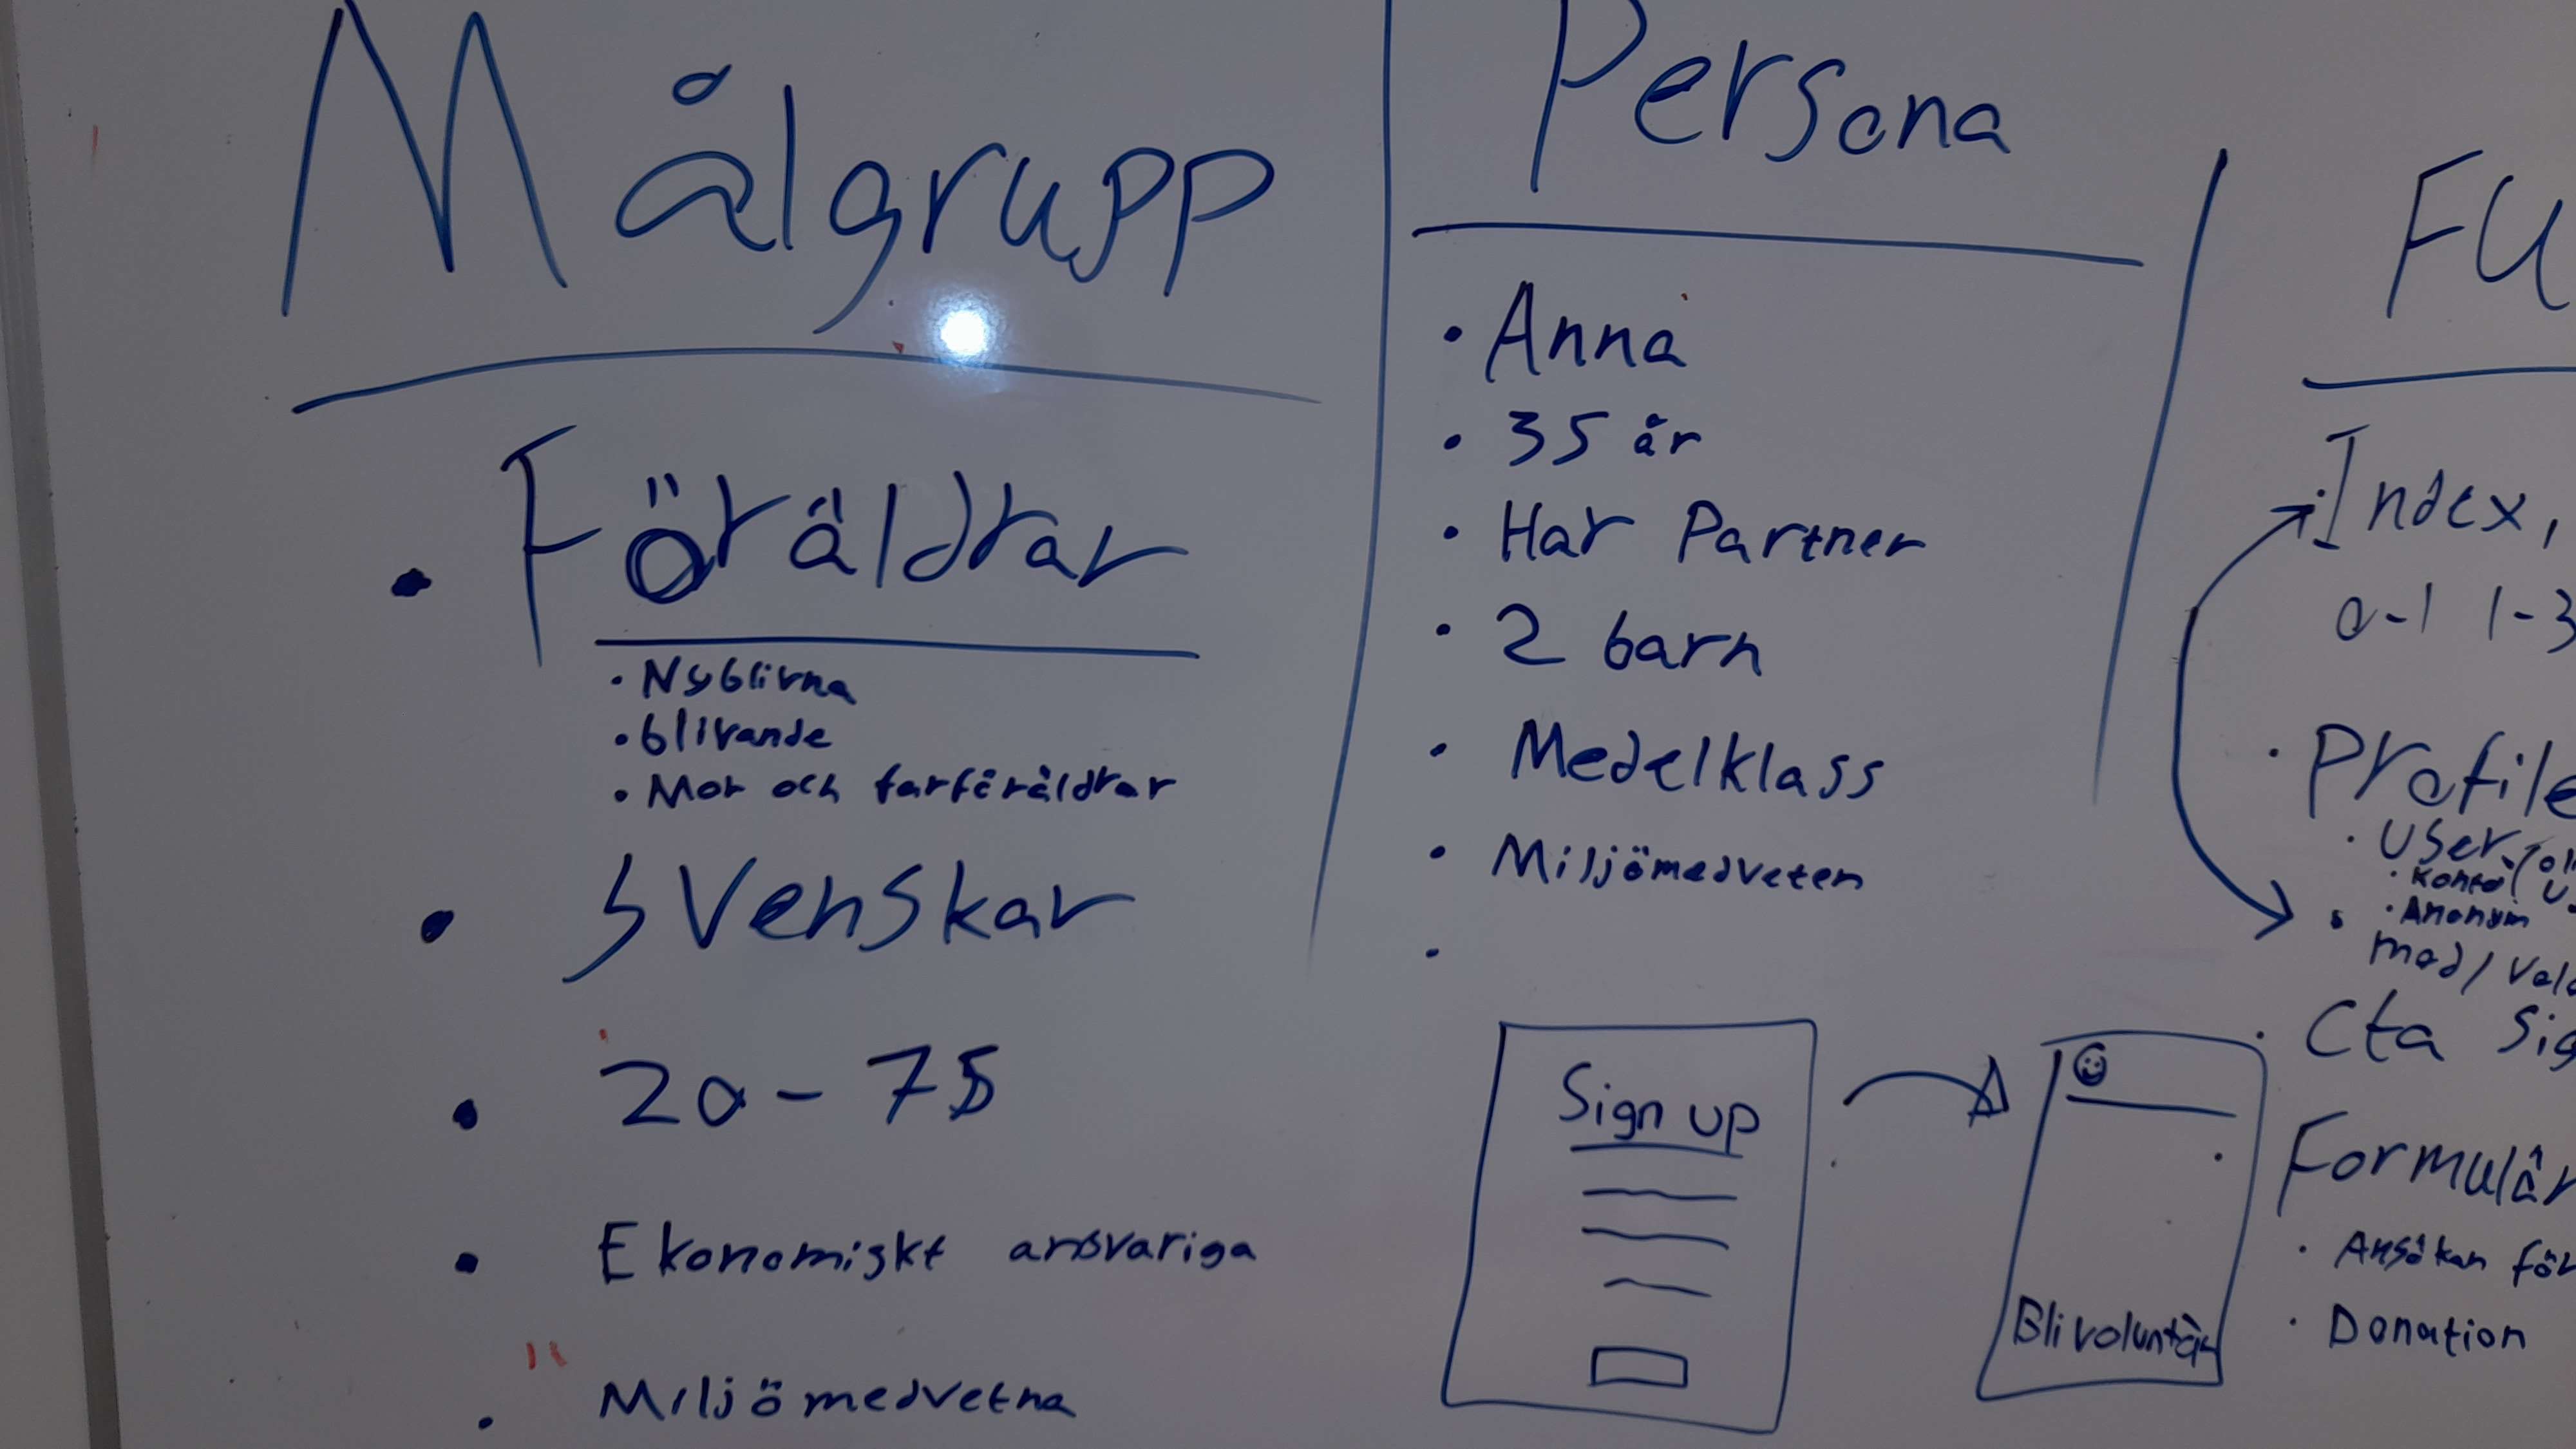 Målgrupp
• Föräldrar
• Nyblivna
• blivande
• Mor och farföräldrar
• Svenskar
• 20-75
• Ekonomiskt ansvariga
• Miljömedvetna
Persona
• Anna
• 35 år
• Har Partner
• 2 barn
• Medelklass
• Miljömedveten
•
Sign up
Bli voluntär
FU
Index,
0-1 1-3
• Profile
• User
• Konto
• Anonym
• Cta Sig
Formulär
• Ansökan för
• Donation